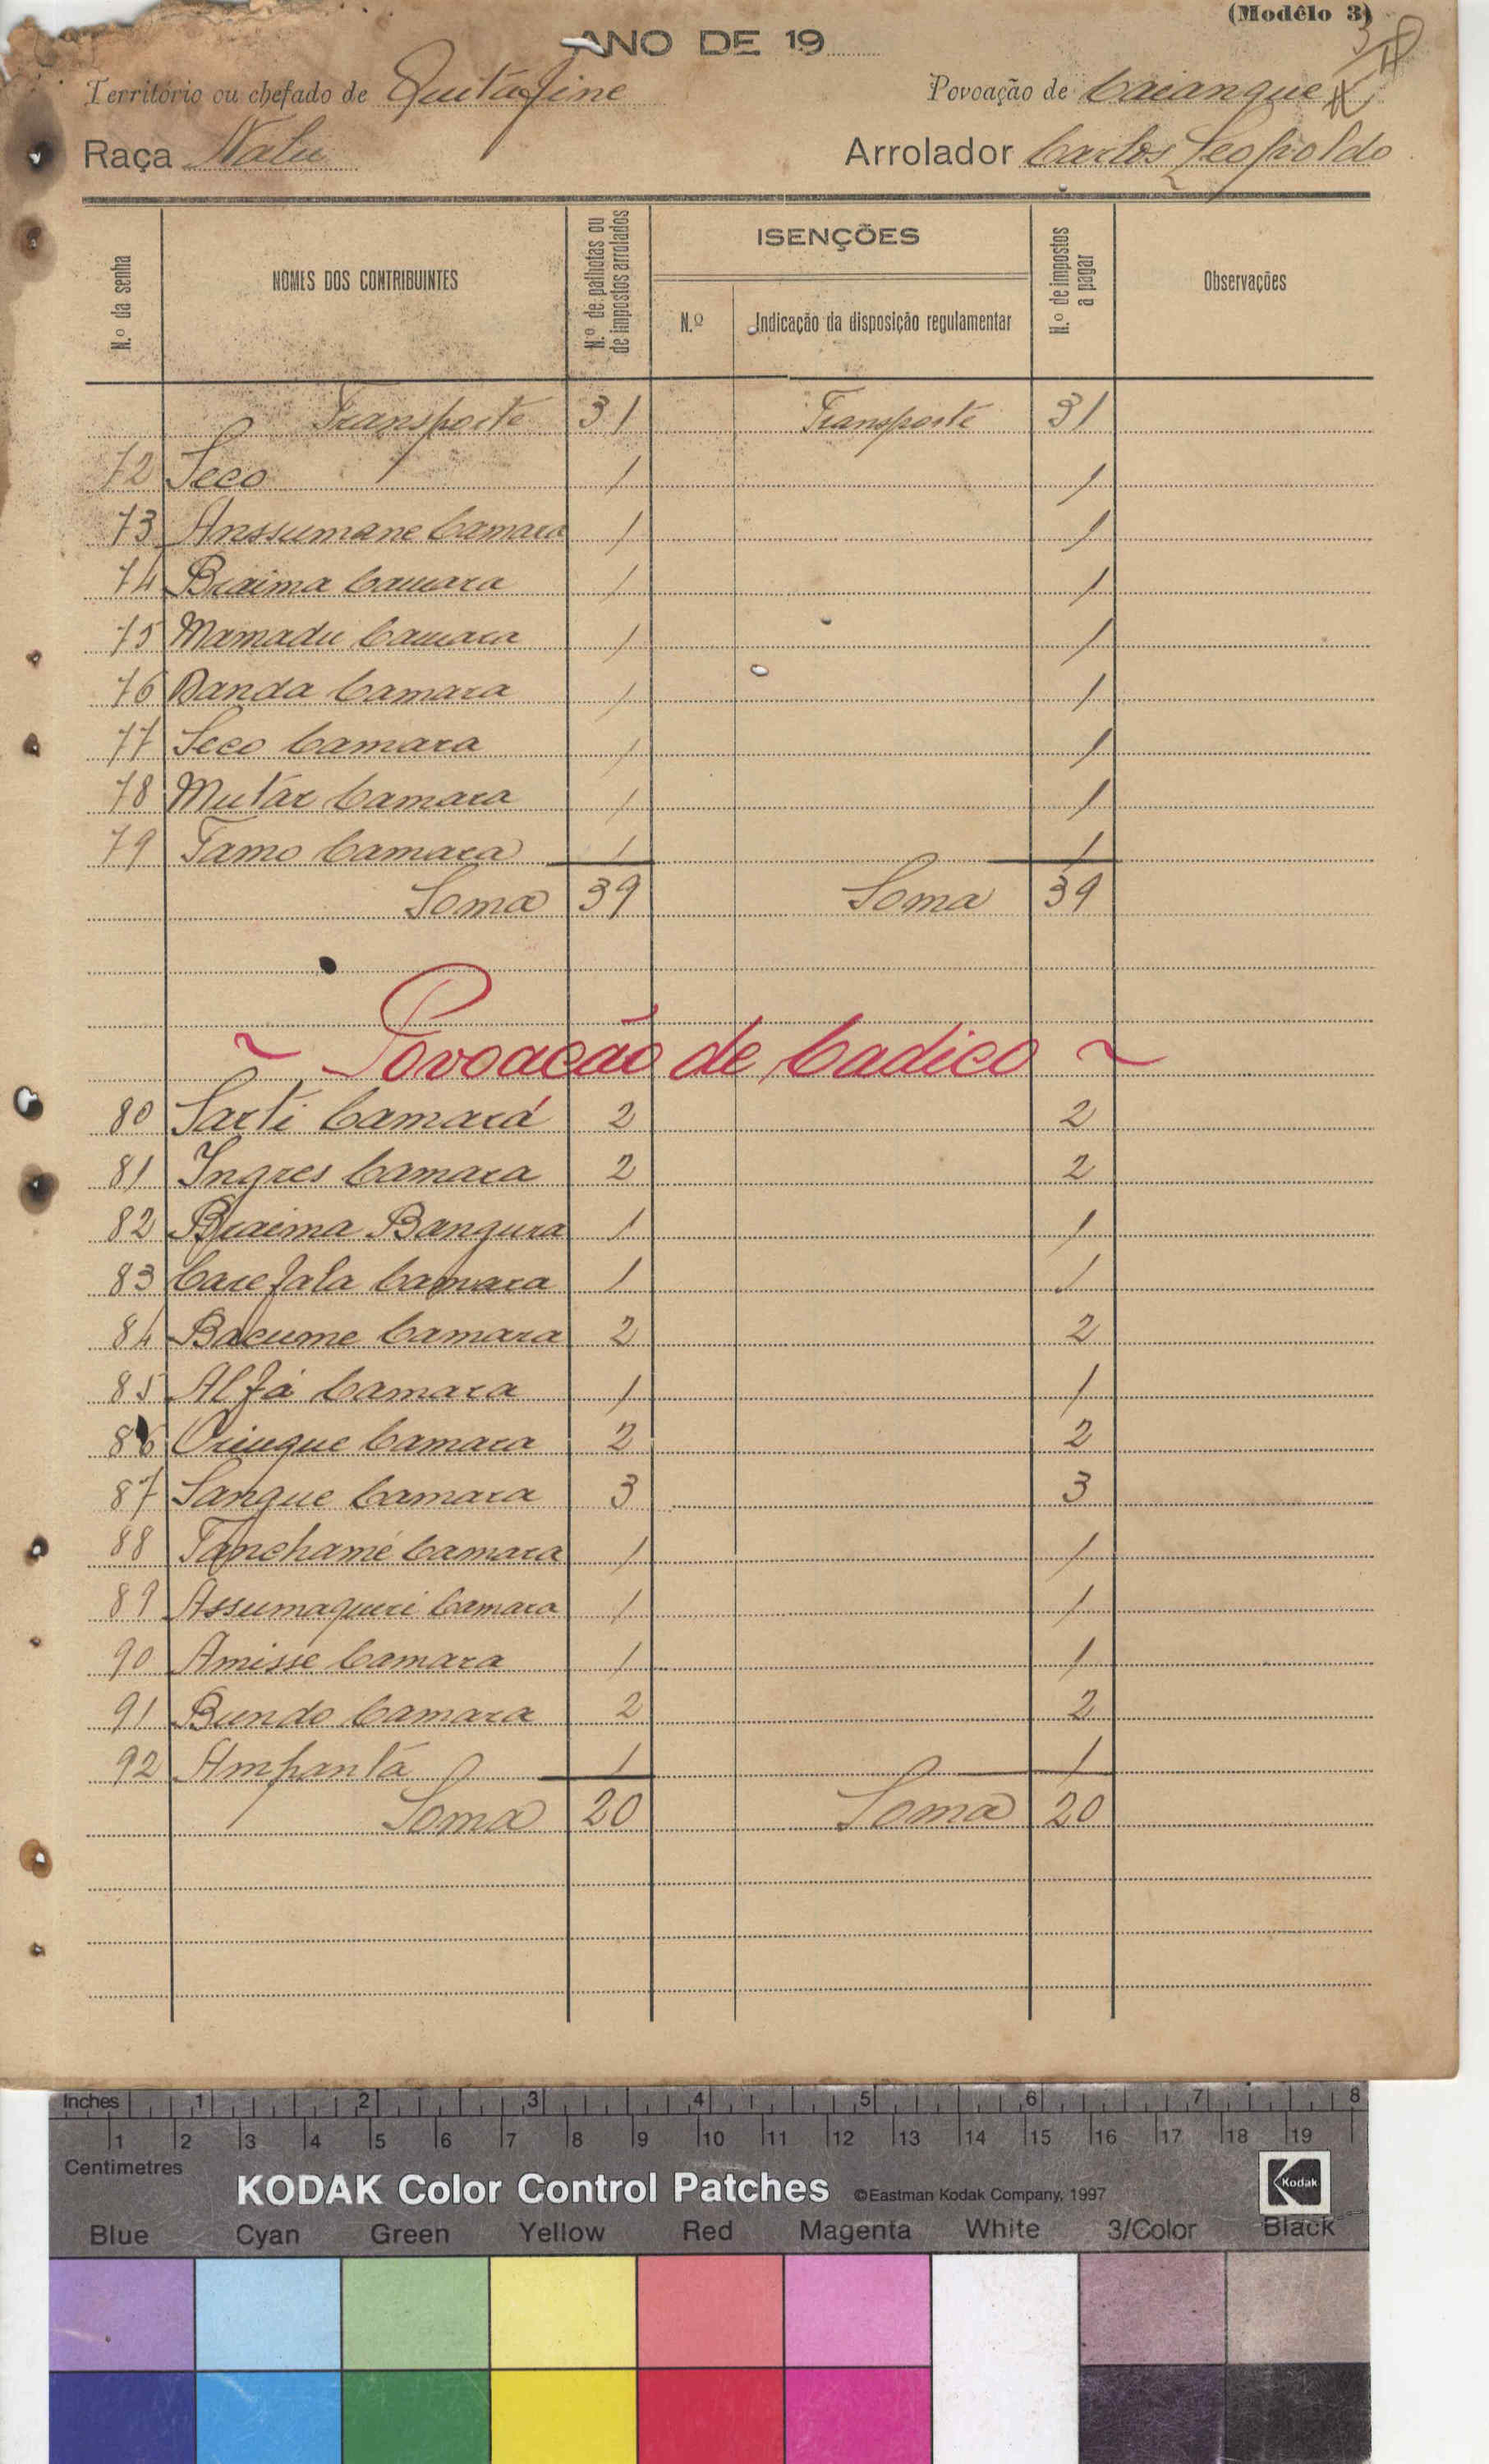 (Modêlo 3)
ANO DE 19
Território ou chefado de Quitafine Povoação de Caianque
Raça Nalu Arrolador Carlos Leopoldo
N.º da senha NOMES DOS CONTRIBUINTES N.º de palhotas ou de impostos arrolados ISENÇÕES N.º de impostos a pagar Observações
N.º Indicação da disposição regulamentar
Transporte 31 Transporte 31
72 Seco 1 1
73 Anssumane Camara 1 1
74 Braima Camara 1 1
75 Mamadu Camara 1 1
76 Danda Camara 1 1
77 Seco Camara 1 1
78 Mutár Camara 1 1
79 Tamo Camara 1 1
Soma 39 Soma 39
~ Povoacão de Cadico ~
80 Sarti Camará 2 2
81 Ingres Camara 2 2
82 Braima Bangura 1 1
83 Carefala Camara 1 1
84 Bacume Camara 2 2
85 Alfá Camara 1 1
86 Camara 2 2
87 Sangue Camara 3 3
88 Tanchamé Camara 1 1
89 Assumaqueri Camara 1 1
90 Amisse Camara 1 1
91 Bundo Camara 2 2
92 Ampantá 1 1
Soma 20 Soma 20
Inches 1 2 3 4 5 6 7 8
1 2 3 4 5 6 7 8 9 10 11 12 13 14 15 16 17 18 19
Centimetres
KODAK Color Control Patches ©Eastman Kodak Company, 1997 Kodak
Blue Cyan Green Yellow Red Magenta White 3/Color Black